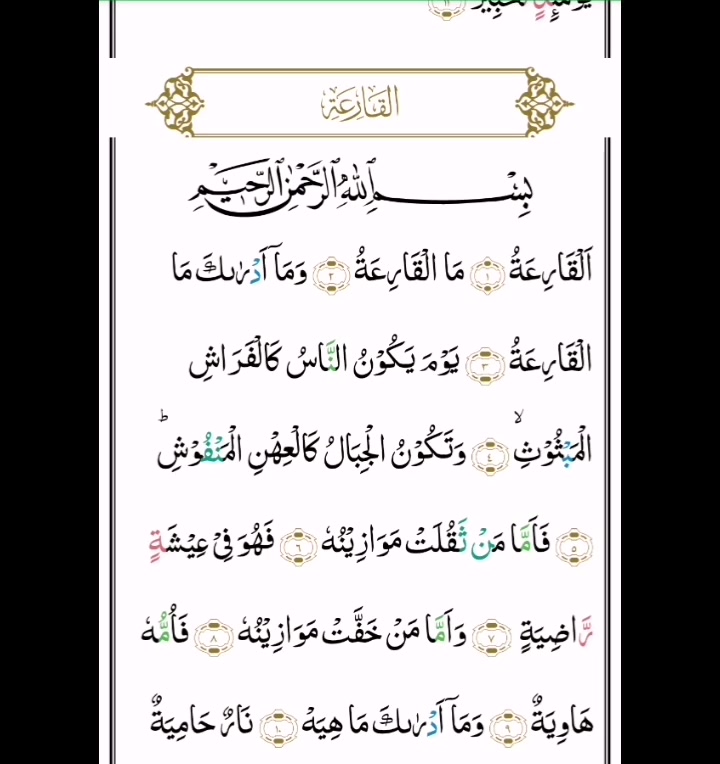 يَوْمَئِذٍ لَّخَبِيْرٌ ۝١١
القَارِعَةِ
بِسْمِ اللّٰهِ الرَّحْمٰنِ الرَّحِيْمِ
اَلْقَارِعَةُ ۝١ مَا الْقَارِعَةُ ۝٢ وَمَآ اَدْرٰىكَ مَا
الْقَارِعَةُ ۝٣ يَوْمَ يَكُوْنُ النَّاسُ كَالْفَرَاشِ
الْمَبْثُوْثِۙ ۝٤ وَتَكُوْنُ الْجِبَالُ كَالْعِهْنِ الْمَنْفُوْشِۗ
۝٥ فَاَمَّا مَنْ ثَقُلَتْ مَوَازِيْنُهٗ ۝٦ فَهُوَ فِيْ عِيْشَةٍ
رَّاضِيَةٍ ۝٧ وَاَمَّا مَنْ خَفَّتْ مَوَازِيْنُهٗ ۝٨ فَاُمُّهٗ
هَاوِيَةٌ ۝٩ وَمَآ اَدْرٰىكَ مَا هِيَهْ ۝١٠ نَارٌ حَامِيَةٌ